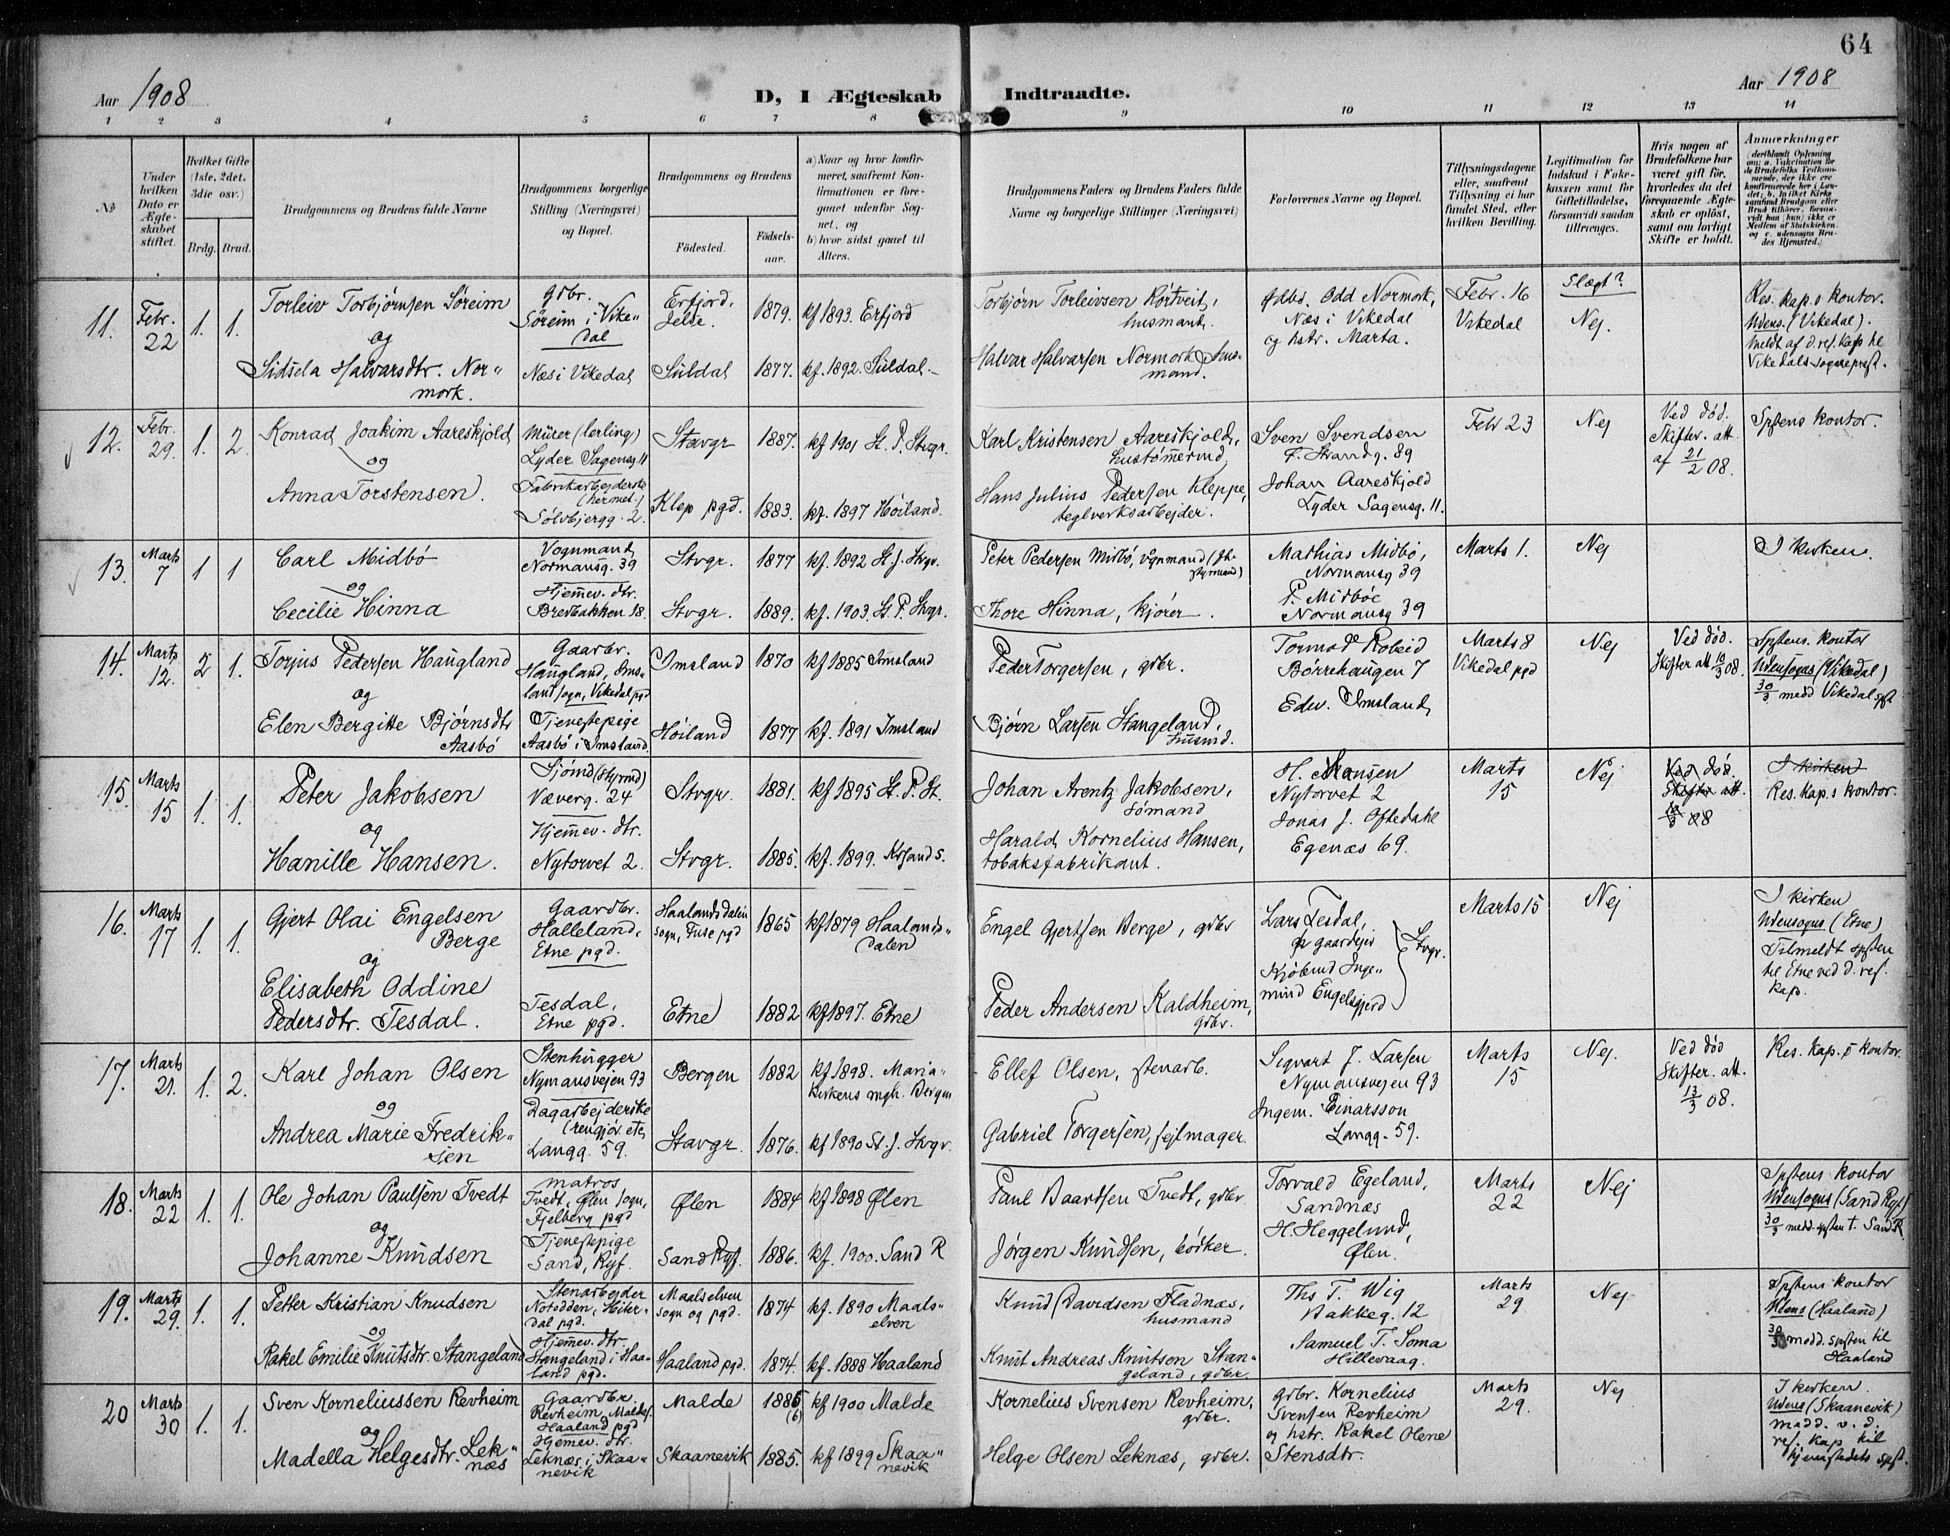 64
Aar 1908
D, I Ægteskab Indtraadte.
Aar 1908
1 2 3 4 5 6 7 8 9 10 11 12 13 14
No
Under hvilken Dato er Ægteskabet stiftet.
Hvilket Gifte (1ste, 2det, 3die osv.)
Brdg. Brud.
Brudgommens og Brudens fulde Navne
Brudgommens borgerlige Stilling (Næringsvei) og Bopæl.
Brudgommens og Brudens
Fødested.
Fødsels-aar.
a) Naar og hvor konfirmeret, saafremt Konfirmationen er foregaaet udenfor Sognet, og
b) hvor sidst gaaet til Alters.
Brudgommens Faders og Brudens Faders fulde Navne og borgerlige Stillinger (Næringsvei)
Forlovernes Navne og Bopæl.
Tillysningsdagene eller, saafremt Tillysning ei har fundet Sted, efter hvilken Bevilling.
Legitimation for Indskud i Enkekassen samt for Giftetilladelse, forsaavidt saadan tiltrænges.
Hvis nogen af Brudefolkene har været gift før, hvorledes da det foregaaende Ægteskab er opløst, samt om lovligt Skifte er holdt.
Anmærkninger
11. Febr. 22 1. 1.
Torleiv Torbjørnsen Søreim
og
Sidsela Halvarsdtr. Normork.
Gdbr. Søreim i Vikedal
Næs i Vikedal
Erfjord, Jelse. 1879. kf 1893. Erfjord
Suldal 1877. kf. 1892. Suldal.
Torbjørn Torleivsen Rørtveit, husmand.
Halvar Halvarsen Normork, husmand.
Gdbr. Odd Normork, Næs i Vikedal
og hstr. Marta.
Febr. 16 Vikedal
Slægt? Nej.
Res. kap.s kontor.
Udens. (Vikedal).
meldt af d. res. kap til
Vikedals sogneprest.
12. Febr. 29. 1. 2
Konrad Joakim Aareskjold
og
Anna Torstensen.
Murer (lerling)
Lyder Sagensg. 11
Fabrikarbejderske (hermet.)
Sölvbjergg. 2.
Stavgr 1887. kf 1901 St. P. Stvgr.
Klep pgd. 1883. kf. 1897 Höiland.
Karl Kristensen Aareskjold, hustømmermd.
Hans Julius Pedersen Kleppe, teglverksarbejder.
Sven Svendsen
F. Strandg. 89
Johan Aareskjold
Lyder Sagensg. 11.
Febr 23
Nej
Ved død. Skifter. att. af 21/2 08.
Spstens kontor.
13. Marts 7 1 1
Carl Midbö
og
Cecilie Hinna
Vognmand, Normansg. 39
Hjemev. dtr. Bredbakken 18.
Stvgr. 1877 kf. 1892 St. J. Stvgr.
Stvgr. 1889. kf. 1903. St. P. Stvgr.
Peter Pedersen Midbö, vognmand
Thore Hinna, kjører.
Mathias Midbö, Normansg 39
P. Midböe
Normansg 39
Marts 1.
Nej
I kirken.
14. Marts 12. 2 1.
Torjus Pedersen Haugland
og
Elen Bergitte Bjørnsdtr Aasbö
Gaardbr. Haugland, Imsland sogn, Vikedal pgd
Tjenestepige Aasbö i Imsland.
Imsland 1870 kf 1885 Imsland
Höiland 1877 kf. 1891 Imsland
Peder Torgersen, gdbr.
Bjørn Larsen Stangeland, husmd.
Tormod Robeid
Börrehaugen 7
Edw. Imsland
Marts 8 Vikedal pgd
Nej
Ved död. Skifter att 10/3 08.
Spstens. kontor
Udensogns (Vikedal)
30/3 medd Vikedal spst
15. Marts 15 1. 1.
Peter Jakobsen
og
Hanille Hansen.
Sjömd (styrmd) Væverg. 24
Hjemev. dtr. Nytorvet 2.
Stvgr. 1881. kf 1895 St. P. St.
Stvgr. 1885. kf. 1899. Krsand S.
Johan Arentz Jakobsen, sömand
Harald Kornelius Hansen, tobaksfabrikant.
H. Hansen
Nytorvet 2
Jonas J. Oftedahl
Egenæs 69.
Marts 15
Nej
Ved död. Skifter att. 08
I kirken
Res. kap.s kontor.
16. Marts 17 1. 1.
Gjert Olai Engelsen Berge
og
Elisabeth Oddine Pedersdtr. Tesdal.
Gaardbr. Halleland, Etne pgd.
Tesdal, Etne pgd.
Haalandsdalen sogn, Fuse pgd 1865 kf 1879 Haalandsdalen
Etne 1882 kf 1897. Etne
Engel Gjertsen Berge, gdbr
Peder Andersen Kaldheim, gdbr.
Lars Tesdal, gaardejer
Kjöbmd Ingemund Engelsgjerd
Stvgr.
Marts 15
Nej
I kirken
Udensogns (Etne)
Tilmeldt spsten
til Etne ved d. res.
kap.
17. Marts 21. 1. 2.
Karl Johan Olsen
og
Andrea Marie Fredriksen
Stenhugger Nymansvejen 93
Dagarbejderske (rengjör. etc, Langg. 59.
Bergen 1882 kf 1898. Mariakirkens mgh. Bergen
Stavgr. 1876. kf 1890 St. J. Stvgr.
Ellef Olsen, stenarb.
Gabriel Torgersen, sejlmager.
Sigvart J. Larsen
Nymansvejen 93
Ingem. Einarsson
Langg. 59.
Marts 15
Nej.
Ved död Skifter. att. 13/3 08.
Res. kap.s kontor.
18. Marts 22 1. 1.
Ole Johan Paulsen Tvedt
og
Johanne Knudsen
Matros Tvedt, Ølen sogn, Fjelberg pgd
Tjenestepige Sand, Ryf.
Ølen 1884 kf 1898 Ølen
Sand Ryf. 1886. kf. 1900. Sand R
Paul Baardsen Tvedt, gdbr
Jørgen Knudsen, bödker.
Torvald Egeland, Sandnæs
H. Heggelund, Ølen.
Marts 22
Nej
Spstens kontor
Udensogns (Sand Ryf)
30/3 medd. spsten t. Sand R
19. Marts 29. 1. 1.
Petter Kristian Knudsen
og
Rakel Emilie Knutsdtr. Stangeland
Stenarbejder Notodden, Hiterdal pgd.
Hjemev. dtr. Stangeland i Haaland pgd.
Maalselven sogn og pgd. 1874 kf. 1890 Maalselven
Haaland pgd. 1874. kf. 1888 Haaland
Knud Davidsen Fladnæs, husmand
Knut Andreas Knutsen Stangeland, gdbr.
Ths T. Wig
Bakkeg. 12
Samuel T. Soma
Hillevaag.
Marts 29
Nej
Spstens kontor
Udens (Haaland)
30/3 medd. spsten til
Haaland
20 Marts 30 1. 1.
Sven Korneliussen Revheim
og
Madella Helgesdtr. Leknæs
Gaardbr. Revheim, Malde s. Haaland pgd
Hjemev. dtr. Leknæs i Skaanevik
Malde 1885 (6) kf 1900 Malde
Skaanevik 1885. kf 1899 Skaanevik
Kornelius Svensen Revheim, gdbr.
Helge Olsen Leknæs, gdbr.
gdbr. Kornelius Svensen Revheim
og hstr. Rakel Olene Stensdtr.
Marts 29.
Nej
I kirken.
Udens (Skaanevik)
medd. v. d.
res. kap til
hjemstedets spst.